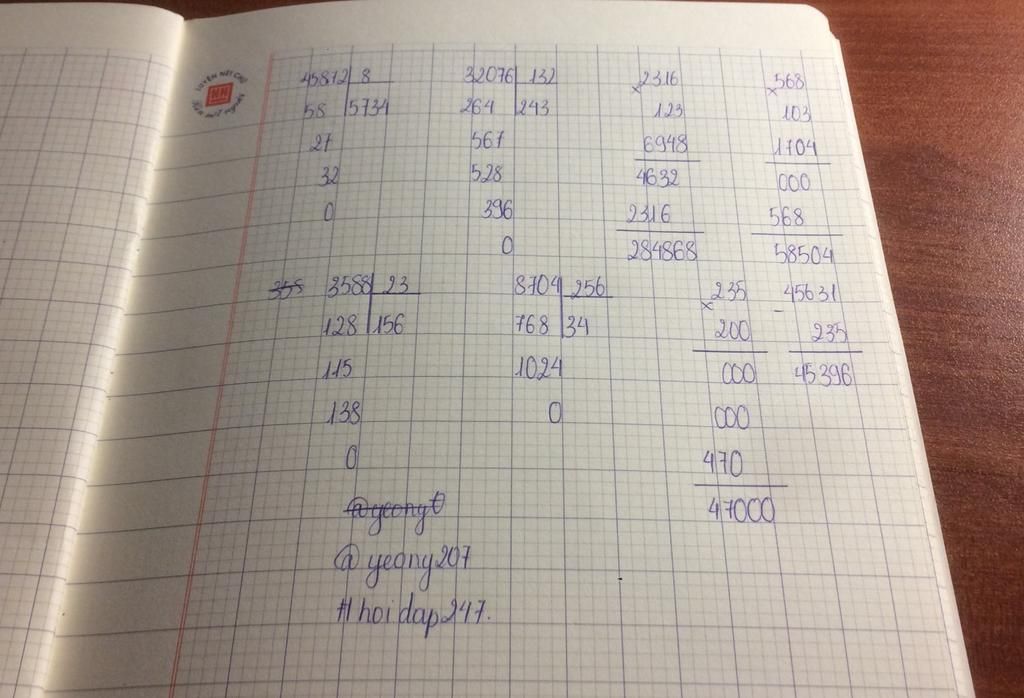 45872 8
58 5734
27
32
0
32076 132
264 243
567
528
396
0
× 2316
123
6948
4632
2316
284868
× 568
103
1704
000
568
58504
355 3588 23
128 156
115
138
0
8704 256
768 34
1024
0
× 235
200
000
000
470
47000
45631
-
235
45396
@yeongt
@yeony207
#hoidap247.
LUYỆN NÉT CHỮ
NN